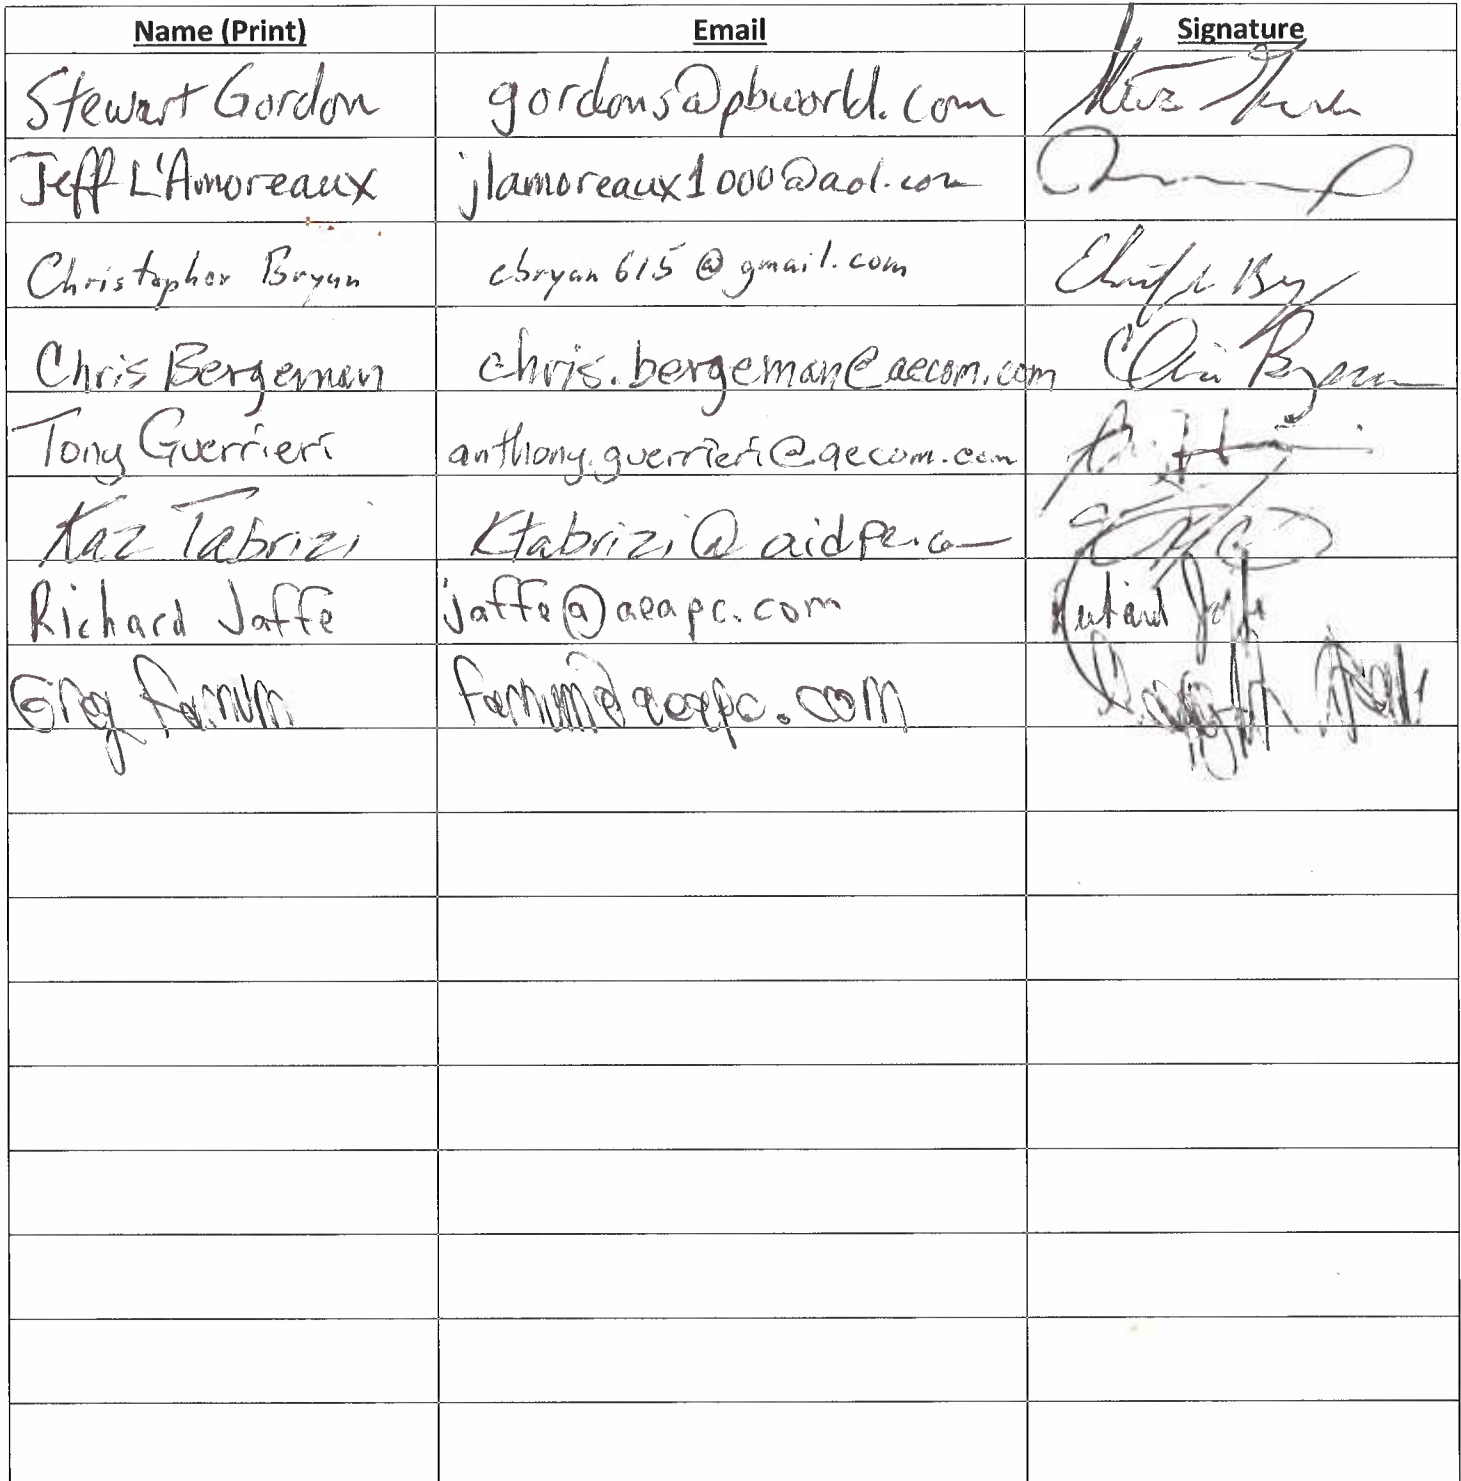 Name (Print) Email Signature
Stewart Gordon gordons@pbworld.com
Jeff L'Amoreaux jlamoreaux1000@aol.com
Christopher Bryan cbryan615@gmail.com
Chris Bergeman chris.bergeman@aecom.com
Tony Guerrieri anthony.guerrieri@aecom.com
Kaz Tabrizi Ktabrizi@aidpe.com
Richard Jaffe jaffe@aeapc.com Richard Jaffe
Greg Farnum farnum@aeapc.com